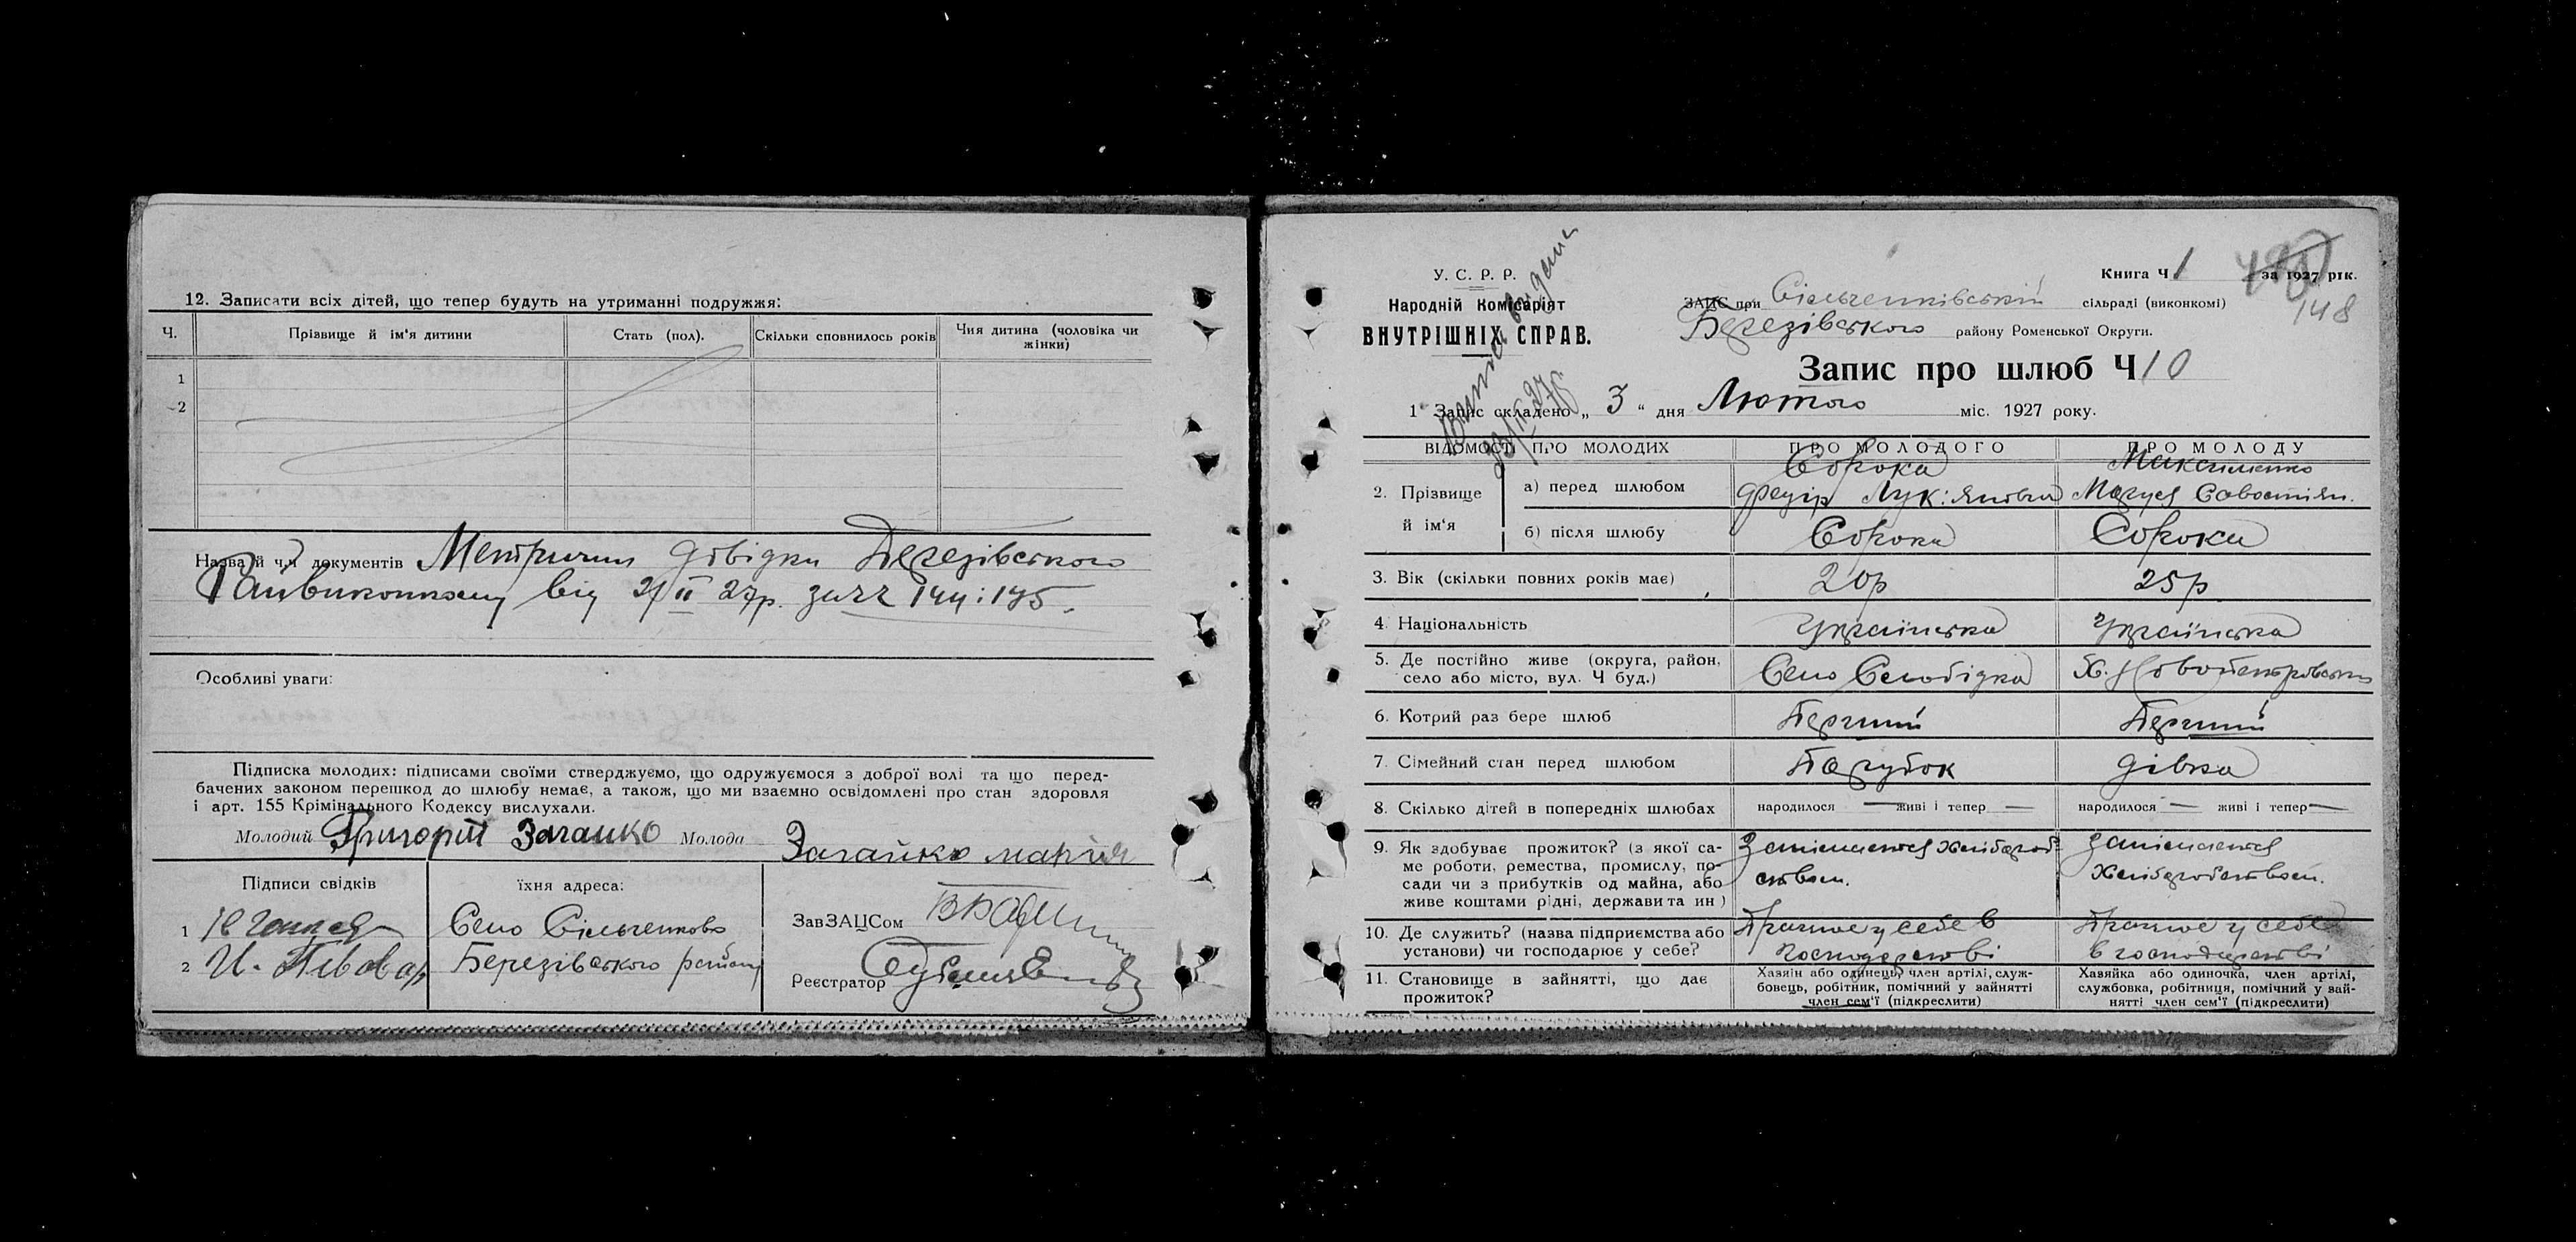 12. Записати всіх дітей, що тепер будуть на утриманні подружжя:
Ч. Прізвище й ім'я дитини Стать (пол). Скільки сповнилось років Чия дитина (чоловіка чи жінки)
1
2
Назва й ч.ч документів Метричні довідки Березівського
Райвиконкому від 2/II 27р. за 144 : 145.
Особливі уваги:
Підписка молодих: підписами своїми стверджуємо, що одружуємося з доброї волі та що перед-
бачених законом перешкод до шлюбу немає, а також, що ми взаємно освідомлені про стан здоровля
і арт. 155 Крімінального Кодексу вислухали.
Молодий Григорій Загайко Молода Загайко марія
Підписи свідків їхня адреса:
1 Село Сільченково
2 И. Півовар Березівського району
ЗавЗАЦСом
Реєстратор
У. С. Р. Р.
Народній Комісаріят
ВНУТРІШНІХ СПРАВ.
Книга Ч 1 за 1927 рік.
148
ЗАЦС при Сільченківській сільраді (виконкомі)
Березівського району Роменської Округи.
Запис про шлюб Ч 10
1 Запис складено „ 3 “ дня Лютого міс. 1927 року.
ВІДОМОСТІ ПРО МОЛОДИХ ПРО МОЛОДОГО ПРО МОЛОДУ
2. Прізвище й ім'я
а) перед шлюбом Сорока Федір Лук'янович Максименко Маруся Савостіян.
б) після шлюбу Сорока Сорока
3. Вік (скільки повних років має) 20р 25р
4. Національність Українська Українська
5. Де постійно живе (округа, район,
село або місто, вул. Ч буд.) Село Слобідка Х. Новопетровськ
6. Котрий раз бере шлюб Перший Перший
7. Сімейний стан перед шлюбом Парубок дівка
8. Скілько дітей в попередніх шлюбах народилося — живі і тепер — народилося — живі і тепер —
9. Як здобуває прожиток? (з якої са-
ме роботи, ремества, промислу, по-
сади чи з прибутків од майна, або
живе коштами рідні, держави та ин)
Займається Хліборобством.
Займається Хліборобством.
10. Де служить? (назва підприємства або
установи) чи господарює у себе?
Працює у себе в господарстві
Працює у себе в господарстві
11. Становище в зайнятті, що дає
прожиток?
Хазяїн або одинець, член артілі, служ-
бовець, робітник, помічний у зайнятті
член сем'ї (підкреслити)
Хазяйка або одиночка, член артілі,
службовка, робітниця, помічний у зай-
нятті член сем'ї (підкреслити)